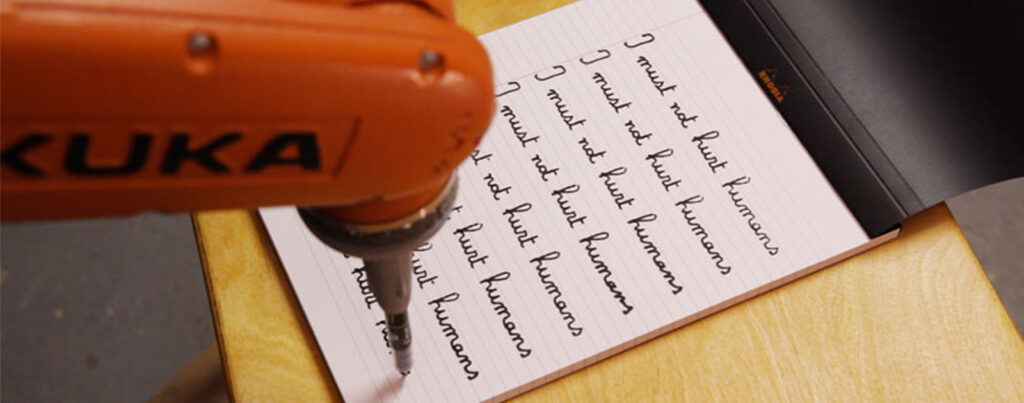 KUKA
RHODIA
I must not hurt humans
I must not hurt humans
I must not hurt humans
I must not hurt humans
not hurt humans
hurt humans
hurt humans
hurt